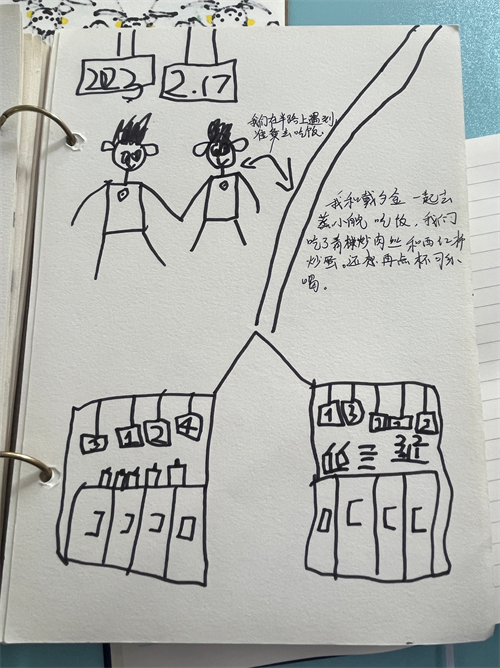 2023 2.17
我们在半路上遇到,
准备去吃饭.
我和戴夕金一起去
蒸小皖吃饭,我们
吃了青椒炒肉丝和西红柿
炒蛋。还想再点杯可乐
喝。
3 1 2 4
1 3 1 2 2